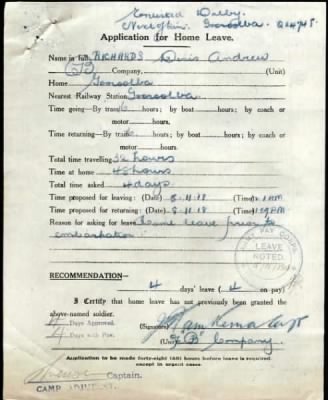 Dalby
Application for Home Leave.
Name in full RICHARDS Denis Andrew
"B" Company, (Unit)
Home Gooroolba
Nearest Railway Station Gooroolba
Time going—By train hours; by boat hours; by coach or
motor hours.
Time returning—By train hours; by boat hours; by coach or
motor hours.
Total time travelling 32 hours
Time at home 48 hours
Total time asked 4 days.
Time proposed for leaving: (Date) 11.18 (Time) AM
Time proposed for returning: (Date) 8.11.18 (Time) AM
Reason for asking for leave Home leave prior to
embarkation
PAY CORPS
LEAVE
NOTED.
RECOMMENDATION—
4 days' leave ( 4 on pay)
I Certify that home leave has not previously been granted the
above-named soldier.
4 Days Approved.
4 Days with Pay.
(Signature)
(Unit) "B" Company.
Application to be made forty-eight (48) hours before leave is required
except in urgent cases.
Captain.
CAMP ADJUTANT.